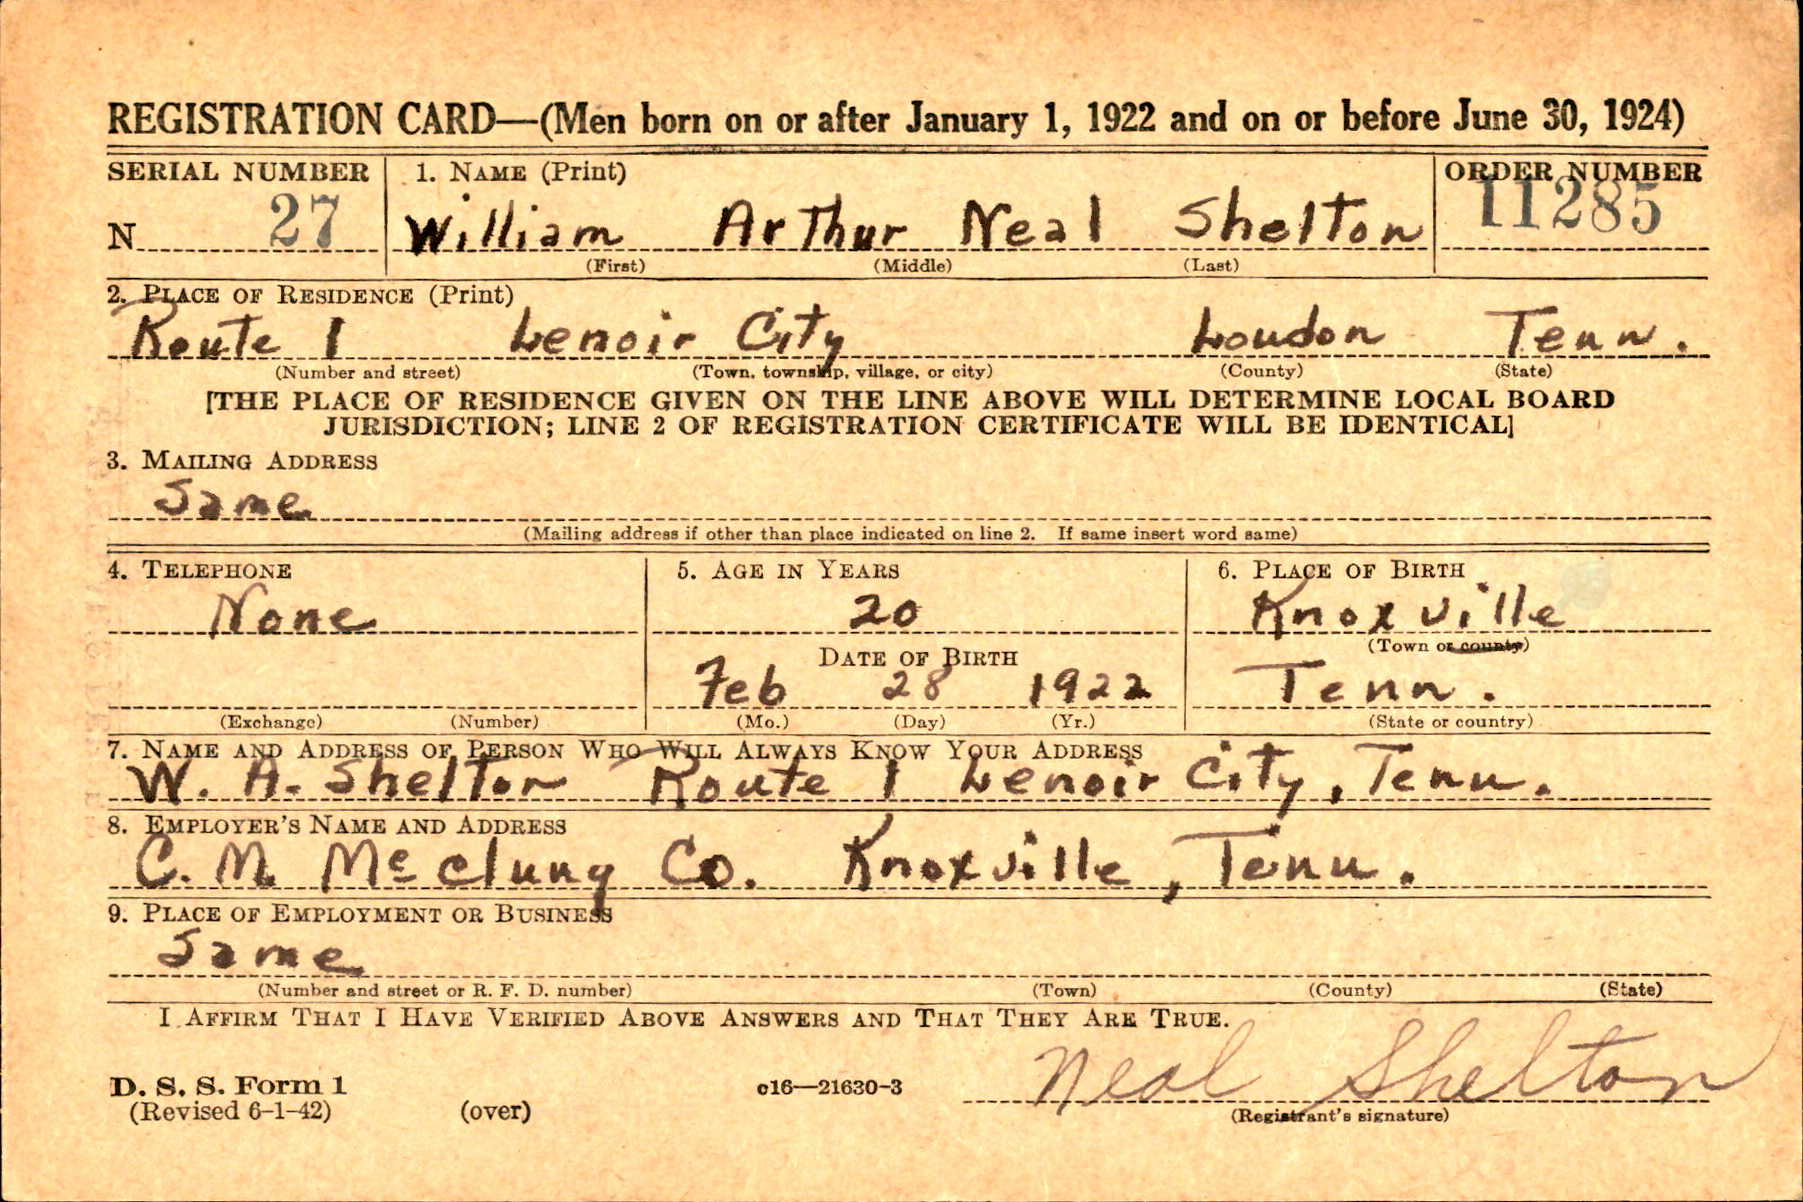 REGISTRATION CARD—(Men born on or after January 1, 1922 and on or before June 30, 1924)
SERIAL NUMBER 1. NAME (Print) ORDER NUMBER
N 27 William Arthur Neal Shelton 11285
(First) (Middle) (Last)
2. PLACE OF RESIDENCE (Print)
Route 1 Lenoir City Loudon Tenn.
(Number and street) (Town, township, village, or city) (County) (State)
[THE PLACE OF RESIDENCE GIVEN ON THE LINE ABOVE WILL DETERMINE LOCAL BOARD
JURISDICTION; LINE 2 OF REGISTRATION CERTIFICATE WILL BE IDENTICAL]
3. MAILING ADDRESS
Same
(Mailing address if other than place indicated on line 2. If same insert word same)
4. TELEPHONE 5. AGE IN YEARS 6. PLACE OF BIRTH
None 20 Knoxville
(Town or county)
DATE OF BIRTH
Feb 28 1922 Tenn.
(Exchange) (Number) (Mo.) (Day) (Yr.) (State or country)
7. NAME AND ADDRESS OF PERSON WHO WILL ALWAYS KNOW YOUR ADDRESS
W. A. Shelton Route 1 Lenoir City, Tenn.
8. EMPLOYER'S NAME AND ADDRESS
C. M. McClung Co. Knoxville, Tenn.
9. PLACE OF EMPLOYMENT OR BUSINESS
Same
(Number and street or R. F. D. number) (Town) (County) (State)
I AFFIRM THAT I HAVE VERIFIED ABOVE ANSWERS AND THAT THEY ARE TRUE.
Neal Shelton
D. S. S. Form 1 c16—21630-3
(Revised 6-1-42) (over) (Registrant's signature)